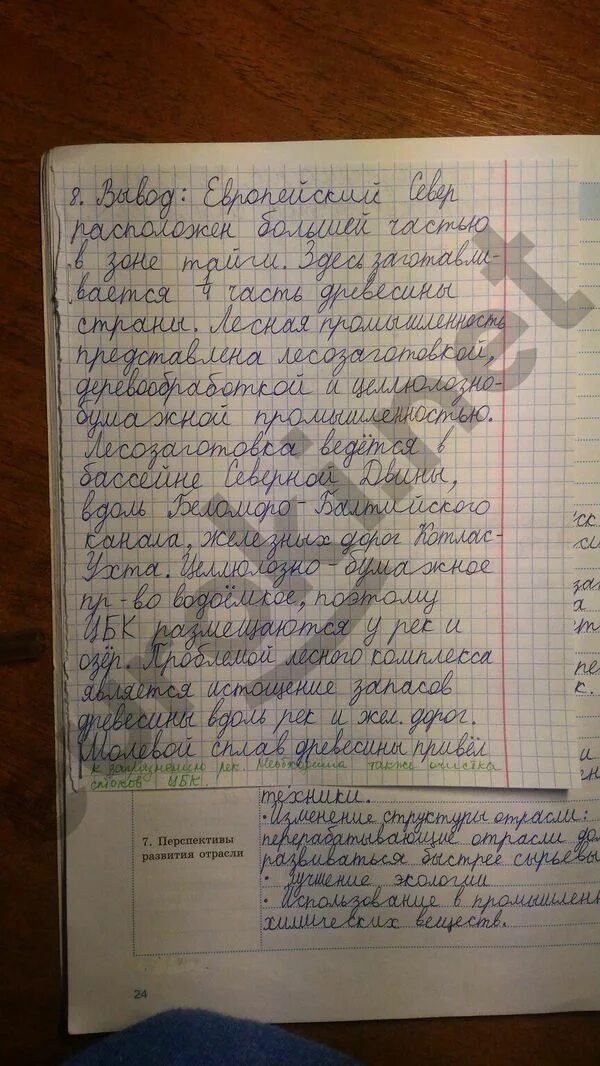 8. Вывод: Европейский Север
расположен большей частью
в зоне тайги. Здесь заготавли-
вается 1/4 часть древесины
страны. Лесная промышленность
представлена лесозаготовкой,
деревообработкой и целлюлозно-
бумажной промышленностью.
Лесозаготовка ведётся в
бассейне Северной Двины,
вдоль Беломоро-Балтийского
канала, железных дорог Котлас-
Ухта. Целлюлозно-бумажное
пр-во водоёмкое, поэтому
ЦБК размещаются у рек и
озёр. Проблемой лесного комплекса
является истощение запасов
древесины вдоль рек и жел. дорог.
Молевой сплав древесины привёл
к рек. Необходима также очистка
стоков ЦБК.
техники.
• Изменение структуры отрасли:
перерабатывающие отрасли дол
развиваться быстрее сырьевы
7. Перспективы
развития отрасли
• Улучшение экологии
• Использование в промышлен
химических веществ.
24